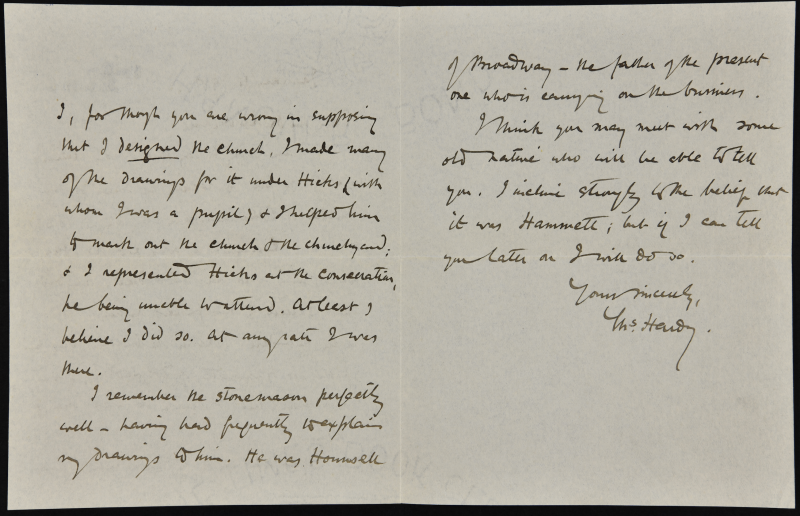 I, for though you are wrong in supposing
that I designed the church, I made many
of the drawings for it under Hicks (with
whom I was a pupil) & I helped him
to mark out the church & the churchyard;
& I represented Hicks at the consecration,
he being unable to attend. At least I
believe I did so. At any rate I was
there.
I remember the stonemason perfectly
well – having had frequently to explain
my drawings to him. He was Hounsell
of Broadway – the father of the present
one who is carrying on the business.
I think you may meet with some
old native who will be able to tell
you. I incline strongly to the belief that
it was Hammett; but if I can tell
you later on I will do so.
Yours sincerely,
Ths. Hardy.